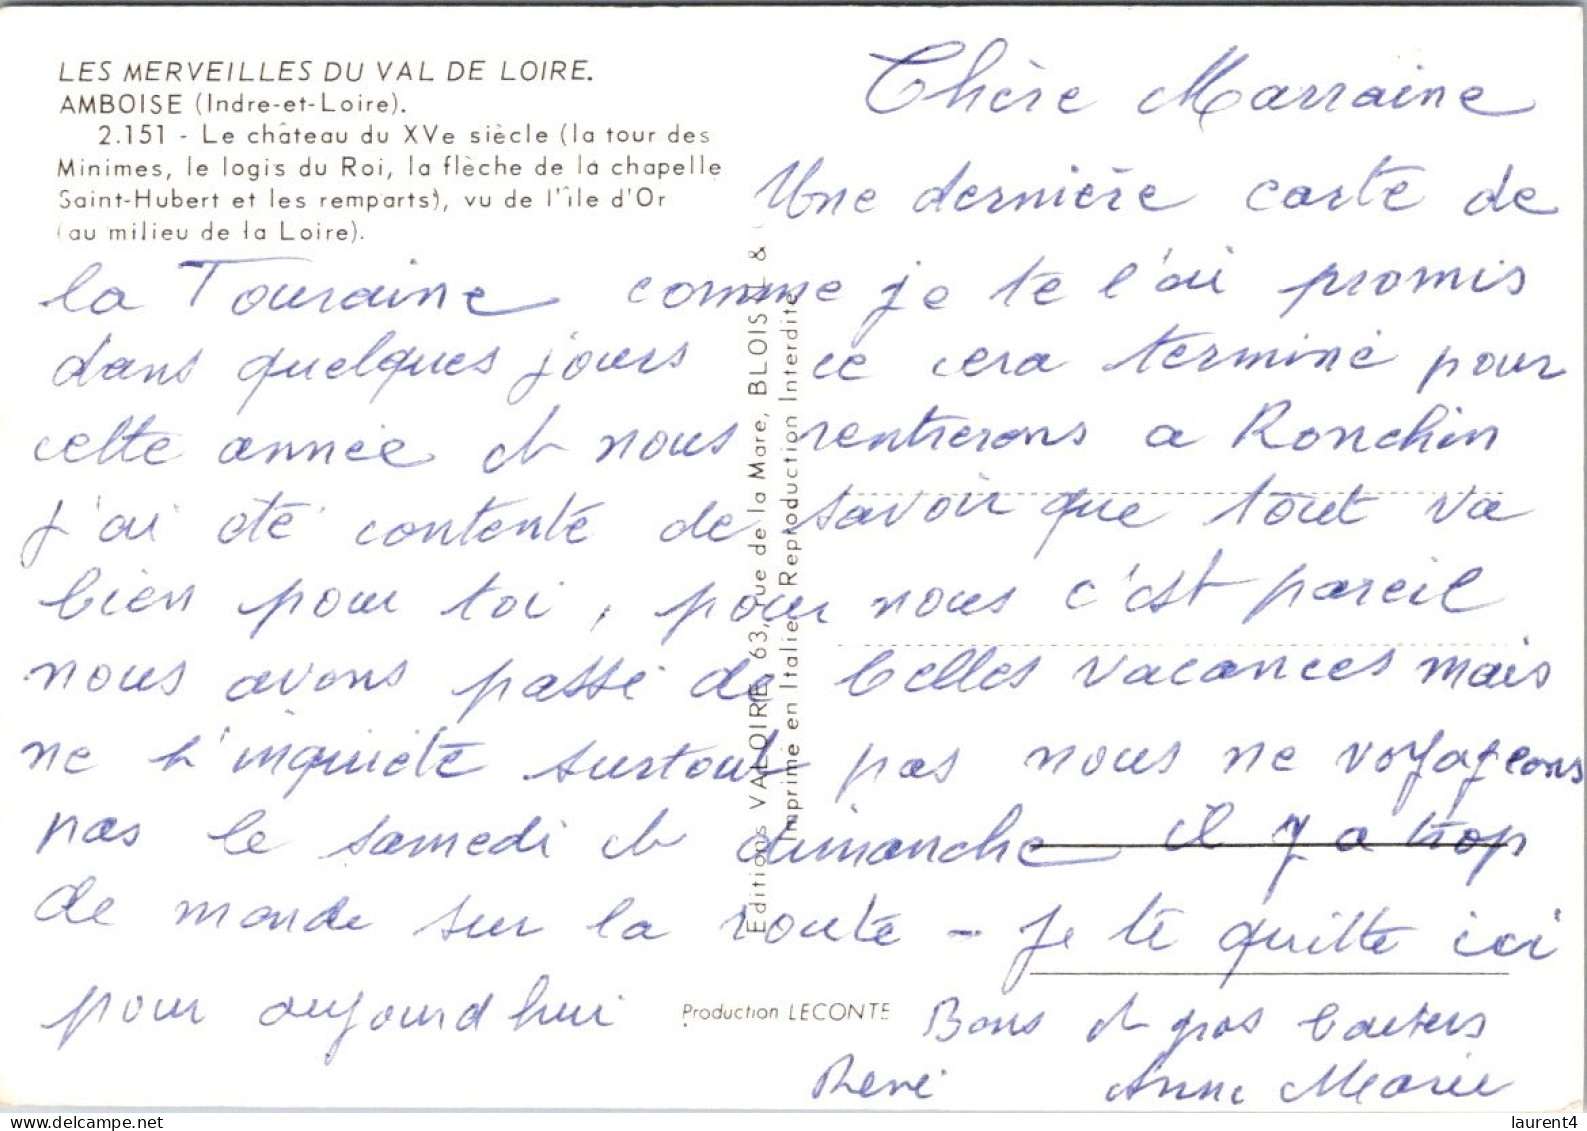 LES MERVEILLES DU VAL DE LOIRE.
AMBOISE (Indre-et-Loire).
2.151 - Le château du XVe siècle (la tour des
Minimes, le logis du Roi, la flèche de la chapelle
Saint-Hubert et les remparts), vu de l'île d'Or
(au milieu de la Loire).
Chère Marraine
Une dernière carte de
la Touraine comme je te l'ai promis
dans quelques jours ce cera terminé pour
cette année et nous rentrerons a Ronchin
j'ai été contente de savoir que tout va
bien pour toi, pour nous c'est pareil
nous avons passé de belles vacances mais
ne t'inquiéte surtout pas nous ne voyageons
pas le samedi et dimanche il y a trop
de monde sur la route - Je te quitte ici
pour aujourd hui
Bons et gros baisers
René Anne Marie
Editions VALOIRE, 63, rue de la Mare, BLOIS &
Imprimé en Italie Reproduction Interdite
Production LECONTE
laurent4